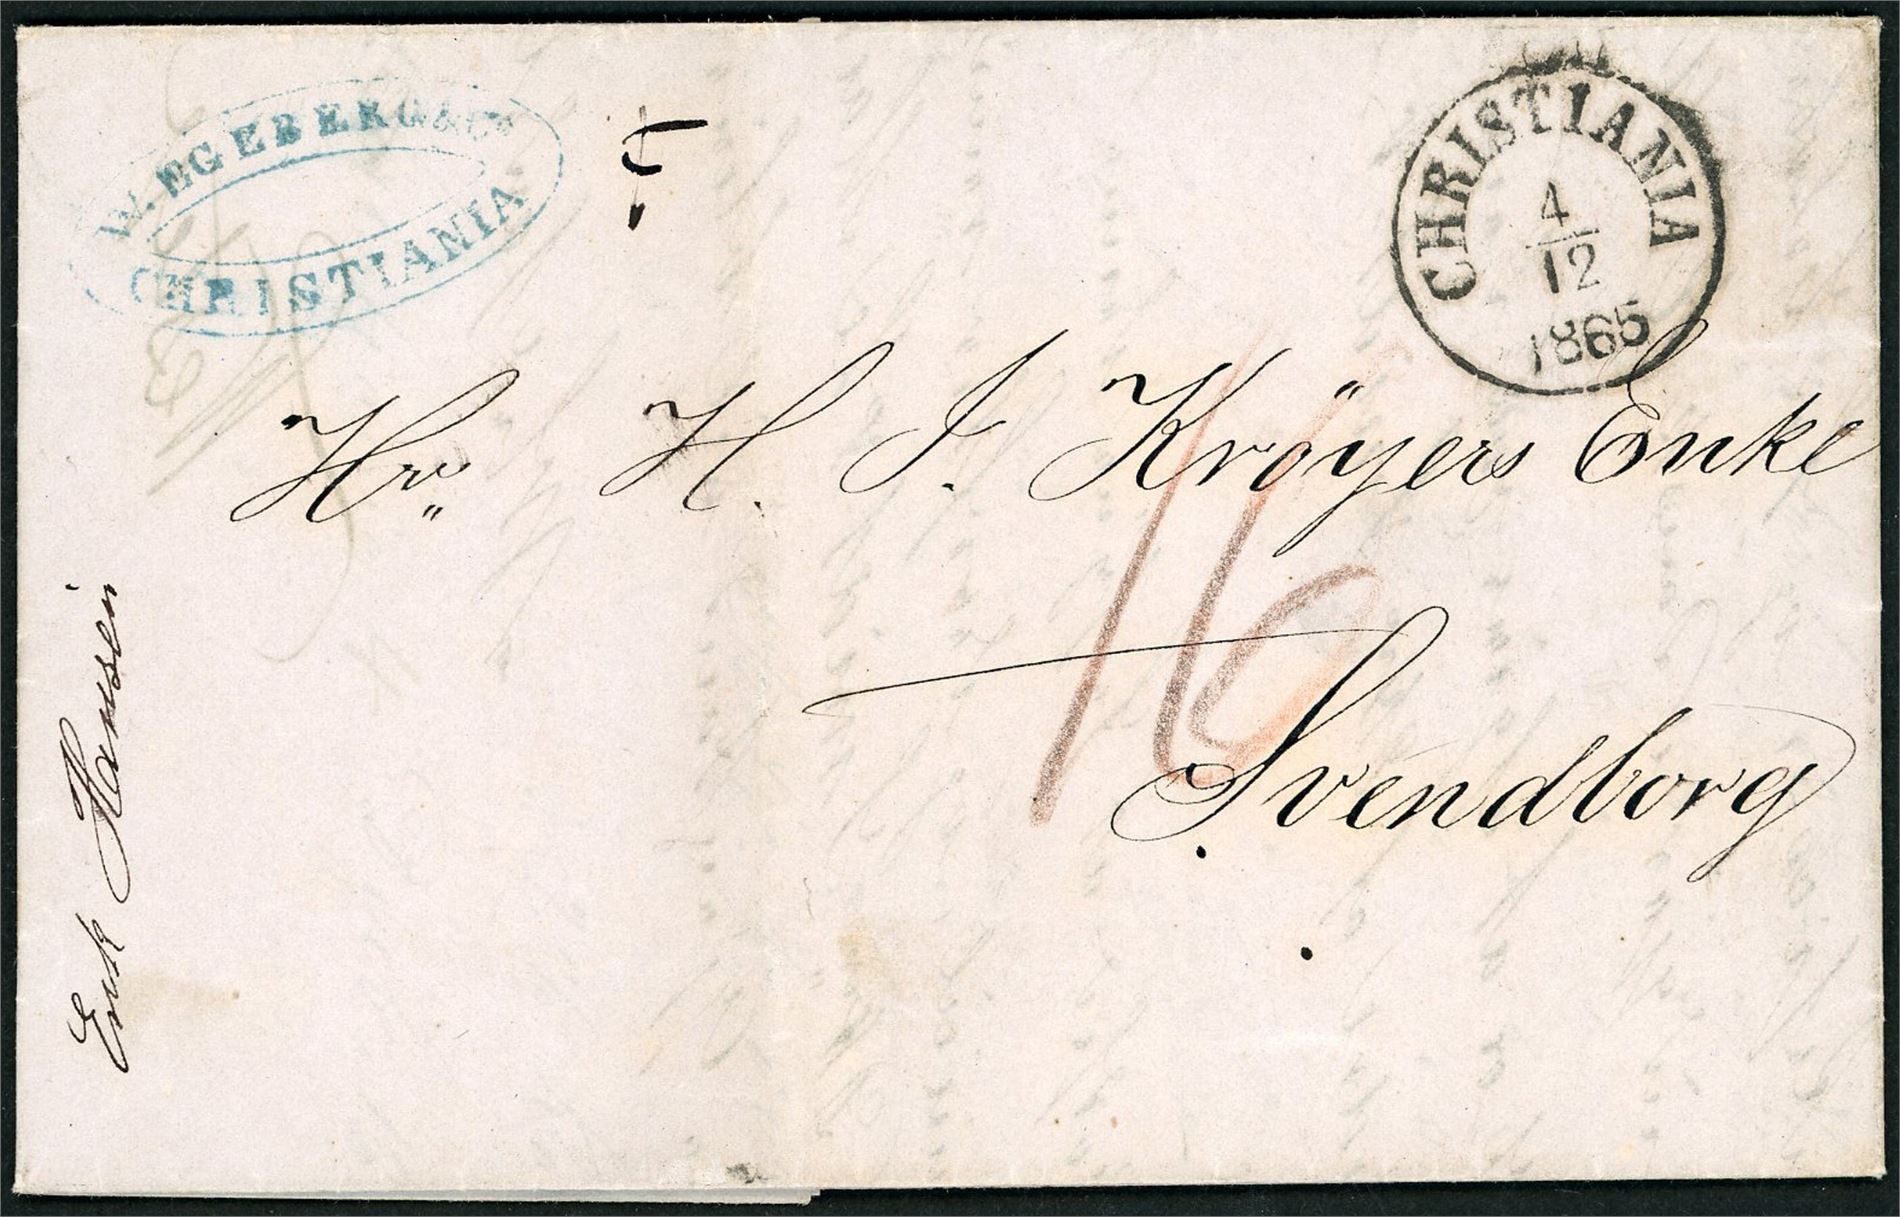 W. EGEBERG & Co
CHRISTIANIA
CHRISTIANIA
4
12
1865
Hr. H. J. Krøyers Enke
16
Svendborg
Enk Hansen